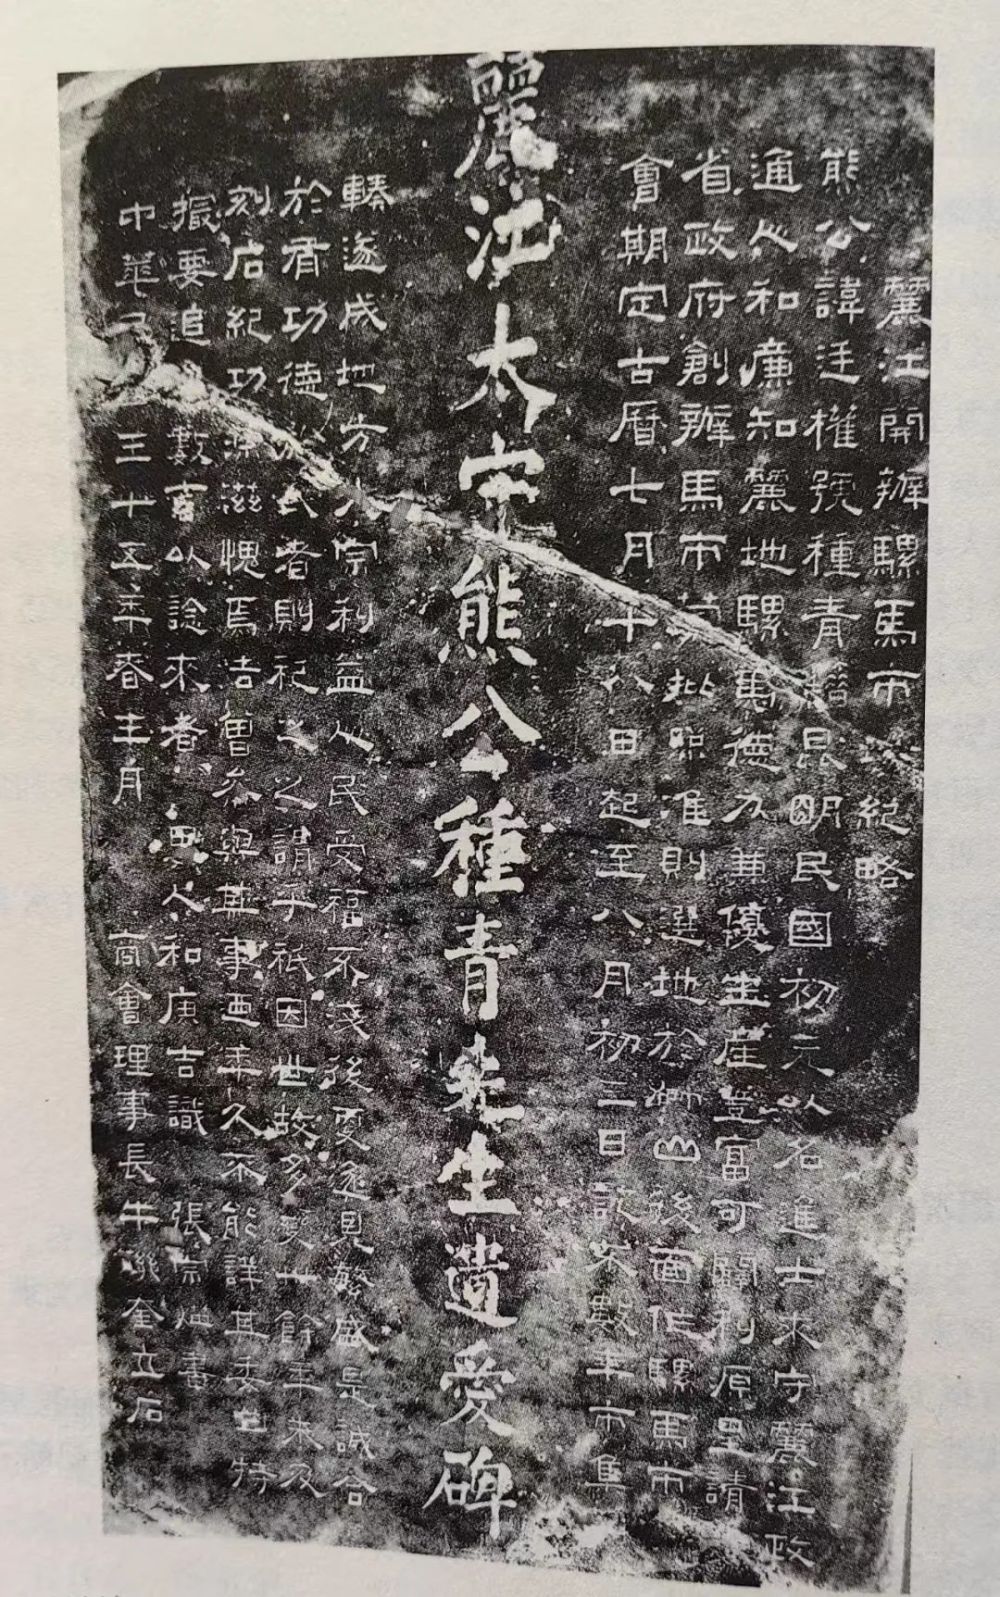 麗江開辦騾馬市 紀略
熊公諱廷權號種青籍昆明民國初元以名進士來守麗江政
通人和廉知麗地騾馬德力兼優生產豐富可闢利原呈請
省政府創辦馬市 批照准則選地於獅山後面作騾馬市
會期定古曆七月十八日起至八月初三日訖不數年市集
麗江太守熊公種青先生遺愛碑
輳遂成地方大宗利益人民受福不淺後更逐見繁盛是誠合
於有功德於民者則祀之之謂乎祇因世故多變卅餘年未及
刻石紀功 滋愧焉吉曾參與其事西年久不能詳其委曲特
撮要追 數言以諗來者 里人和庚吉識 張宗 書
中華民 三十五年春王月 商會理事長牛 奎立石